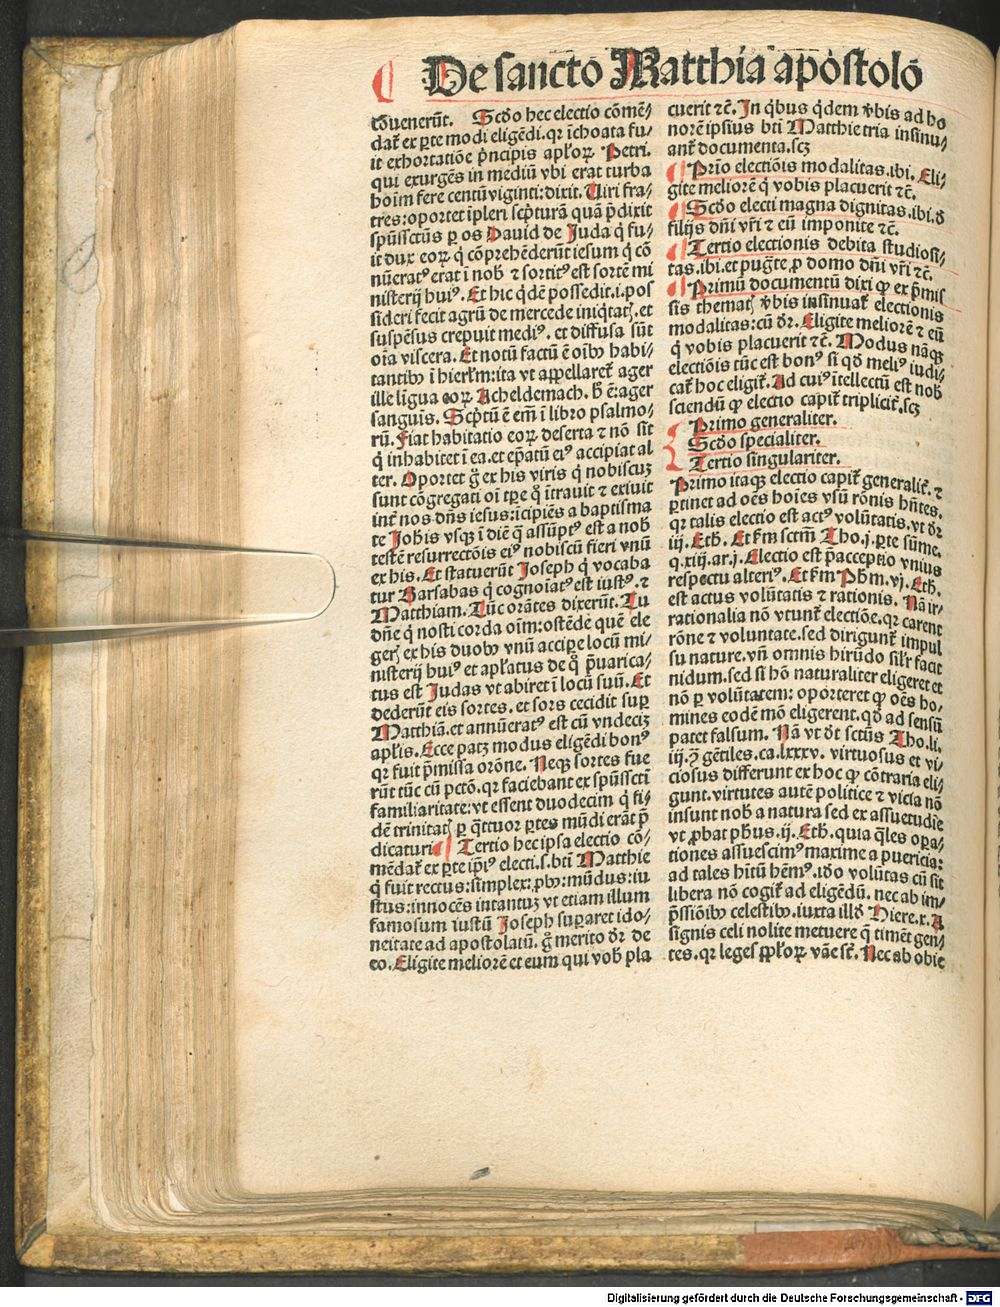 De sancto Matthia apostolo
cōuenerūt. Scdo hec electio cōmē⸗
dat᷑ ex ꝑte modi eligēdi. qꝛ īchoata fu⸗
it exhortatiōe pͥncipis apl'oꝝ Petri.
qui exurgēs in mediū vbi erat turba
hoīm fere centū viginti: dixit. Uiri fra⸗
tres: oportet īpleri scpͥturā quā p̄dixit
spūssctūs ꝑ os Dauid de Juda q̇ fu⸗
it dux eoꝝ q̇ cōprehēderūt iesum q̇ cō
nūeratꝰ erat ī nob̄ ⁊ sortitꝰ est sortē mi
nisterij huiꝰ. Et hic qͥdē possedit. i. pos
sideri fecit agrū de mercede iniqͥtatꝭ. et
suspēsus crepuit mediꝰ. et diffusa sūt
oīa viscera. Et notū factū ē oībꝰ habi⸗
tantibꝰ ī hierl̄m: ita vt appellaret᷑ ager
ille līgua eoꝝ Acheldemach. h̄ ē: ager
sanguis. Scpͥtū ē em̄ ī libro psalmo⸗
rū. Fiat habitatio eoꝝ deserta ⁊ nō sit
q̇ inhabitet ī ea. et ep̄atū eiꝰ accipiat al
ter. Oportet g̊ ex his viris q̇ nobiscuꝫ
sunt cōgregati oī tꝑe q̊ ītrauit ⁊ exiuit
int᷑ nos dn̄s iesus: īcipiēs a baptisma
te Johis vsqꝫ ī diē q̊ assūptꝰ est a nob̄
testē resurrectōis eiꝰ nobiscū fieri vnū
ex his. Et statuerūt Joseph q̇ vocaba
tur Barsabas q̇ cognoīatꝰ est iustꝰ. ⁊
Matthiam. Tūc orātes dixerūt. Tu
dn̄e q̇ nosti corda oīm: ostēde quē ele
gerꝭ ex his duobꝰ vnū accipe locū mi⸗
nisterij huiꝰ et apl'atus de q̊ p̄uarica⸗
tus est Judas vt abiret ī locū suū. Et
dederūt eis sortes. et sors cecidit suꝑ
Matthiā. et annūeratꝰ est cū vndeciꝫ
apl'is. Ecce patꝫ modus eligēdi bonꝰ
qꝛ fuit p̄missa orōne. Neqꝫ sortes fue
rūt tūc cū pctō. qꝛ faciebant ex spūssctī
familiaritate: vt essent duodecim q̇ fi⸗
dē trinitatꝭ ꝑ qͣttuor ꝑtes mūdi erāt p̄
dicaturi. Tertio hec ipsa electio cō⸗
mēdat᷑ ex ꝑte ip̄iꝰ electi. s. bt̄i Matthie
q̇ fuit rectus: simplex: ꝓbꝰ: mūdus: iu
stus: innocēs intantuꝫ vt etiam illum
famosum iustū Joseph suꝑaret ido⸗
neitate ad apostolatū. g̊ merito dr̄ de
eo. Eligite meliorē et eum qui vob̄ pla
cuerit ⁊c̄. In qͥbus qͥdem v̄bis ad ho
norē ipsius bt̄i Matthie tria insinu⸗
ant᷑ documenta. scꝫ
Prīo electiōis modalitas. ibi. Eli⸗
gite meliorē q̇ vobis placuerit ⁊c̄.
Scdo electi magna dignitas. ibi. d̄
filijs dn̄i vr̄i ⁊ eū imponite ⁊c̄.
Tertio electionis debita studiosi⸗
tas. ibi. et pugͣte ꝓ domo dn̄i vr̄i ⁊c̄.
Primū documentū dixi ꝙ ex p̄mis
sis thematꝭ v̄bis insinuat᷑ electionis
modalitas: cū dr̄. Eligite meliorē ⁊ eū
q̇ vobis placuerit ⁊c̄. Modus nāqꝫ
electiōis tūc est bonꝰ si qd̄ meliꝰ iudi⸗
cat᷑ hoc eligit᷑. Ad cuiꝰ ītellectū est nob̄
sciendū ꝙ electio capit᷑ triplicit᷑. scꝫ
Primo generaliter.
Scdo specialiter.
Tertio singulariter.
Primo itaqꝫ electio capit᷑ generalit᷑. ⁊
ꝑtinet ad oēs hoīes vsū rōnis hn̄tes.
qꝛ talis electio est actꝰ volūtatis. vt dr̄
iij. Eth̄. Et km̄ sctm̄ Tho. j. ꝑte sūme.
q. xiij. ar. j. Electio est p̄acceptio vnius
respectu alteriꝰ. Et km̄ Ph̄m. vj. Eth̄.
est actus volūtatis ⁊ rationis. Nā ir⸗
rationalia nō vtunt᷑ electiōe. qꝛ carent
rōne ⁊ voluntate. sed dirigunt᷑ impul
su nature. vn̄ omnis hirūdo sil'r facit
nidum. sed si hō naturaliter eligeret et
nō ꝑ volūtatem: oporteret ꝙ oēs ho⸗
mines eodē mō eligerent. qd̄ ad sensū
patet falsum. Nā vt dt̄ sctūs Tho. li.
iij. ꝯ̄ gētiles. ca. lxxxv. virtuosus et vi⸗
ciosus differunt ex hoc ꝙ cōtraria eli⸗
gunt. virtutes autē politice ⁊ vicia nō
insunt nob̄ a natura sed ex assuetudīe
vt ꝓbat ph̄us. ij. Eth̄. quia qͣles oꝑa⸗
tiones assuescimꝰ maxime a puericia:
ad tales hītū hēmꝰ. ido volūtas cū sit
libera nō cogit᷑ ad eligēdū. nec ab im⸗
p̄ssiōibꝰ celestibꝰ. iuxta illd̄ Hiere. x. A
signis celi nolite metuere q̄ timēt gen⸗
tes. qꝛ leges ppl'oꝝ vāe st̄. Nec ab obie
Digitalisierung gefördert durch die Deutsche Forschungsgemeinschaft - DFG